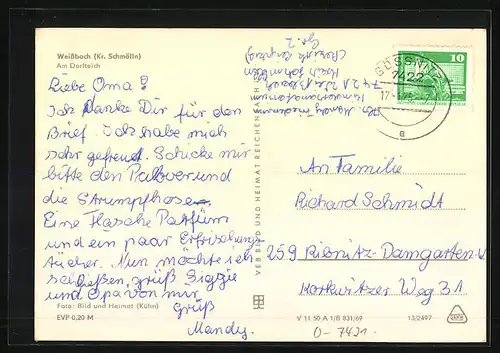 Weißbach (Kr. Schmölln)
Am Dorfteich
Liebe Oma!
Ich danke Dir für den
Brief. ich habe mich
sehr gefreut. Schicke mir
bitte den Pullover und
die Strumpfhose.
Eine Flasche Parfüm
und ein paar Erfrischungs-
tücher. Nun möchte ich
schließen, grüß Siggie
und Opa von mir
Grüß
Mandy.
Foto: Bild und Heimat (Kühn)
EVP 0,20 M
VEB BILD UND HEIMAT REICHENBACH
Abs. Mandy
Kindersanatorium
7421
Kreis Schmölln
(Bezirk Leipzig)
Gr. 2
GÖSSNITZ
7422
17.
a
10
An Familie
Richard Schmidt
259 Ribnitz-Damgarten
Korkwitzer Weg 31
V 11 50 A 1/B 831/69
13/2497
0-7431